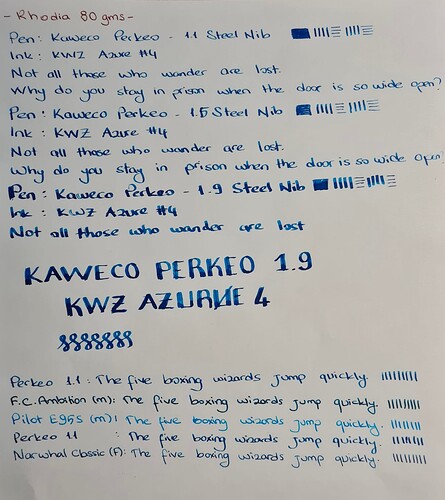 - Rhodia 80 gms -
Pen : Kaweco Perkeo - 1.1 Steel Nib
Ink : KWZ Azure #4
Not all those who wander are lost.
Why do you stay in prison when the door is so wide open?
Pen : Kaweco Perkeo - 1.5 Steel Nib
Ink : KWZ Azure #4
Not all those who wander are lost.
Why do you stay in prison when the door is so wide open?
Pen : Kaweco Perkeo - 1.9 Steel Nib
Ink : KWZ Azure #4
Not all those who wander are lost
KAWECO PERKEO 1.9
KWZ 4
Perkeo 1.1 : The five boxing wizards jump quickly.
F.C. Ambition (m) : The five boxing wizards jump quickly.
Pilot E95S (m) : The five boxing wizards jump quickly.
Perkeo 1.1 : The five boxing wizards jump quickly.
Narwhal Classic (F) : The five boxing wizards jump quickly.